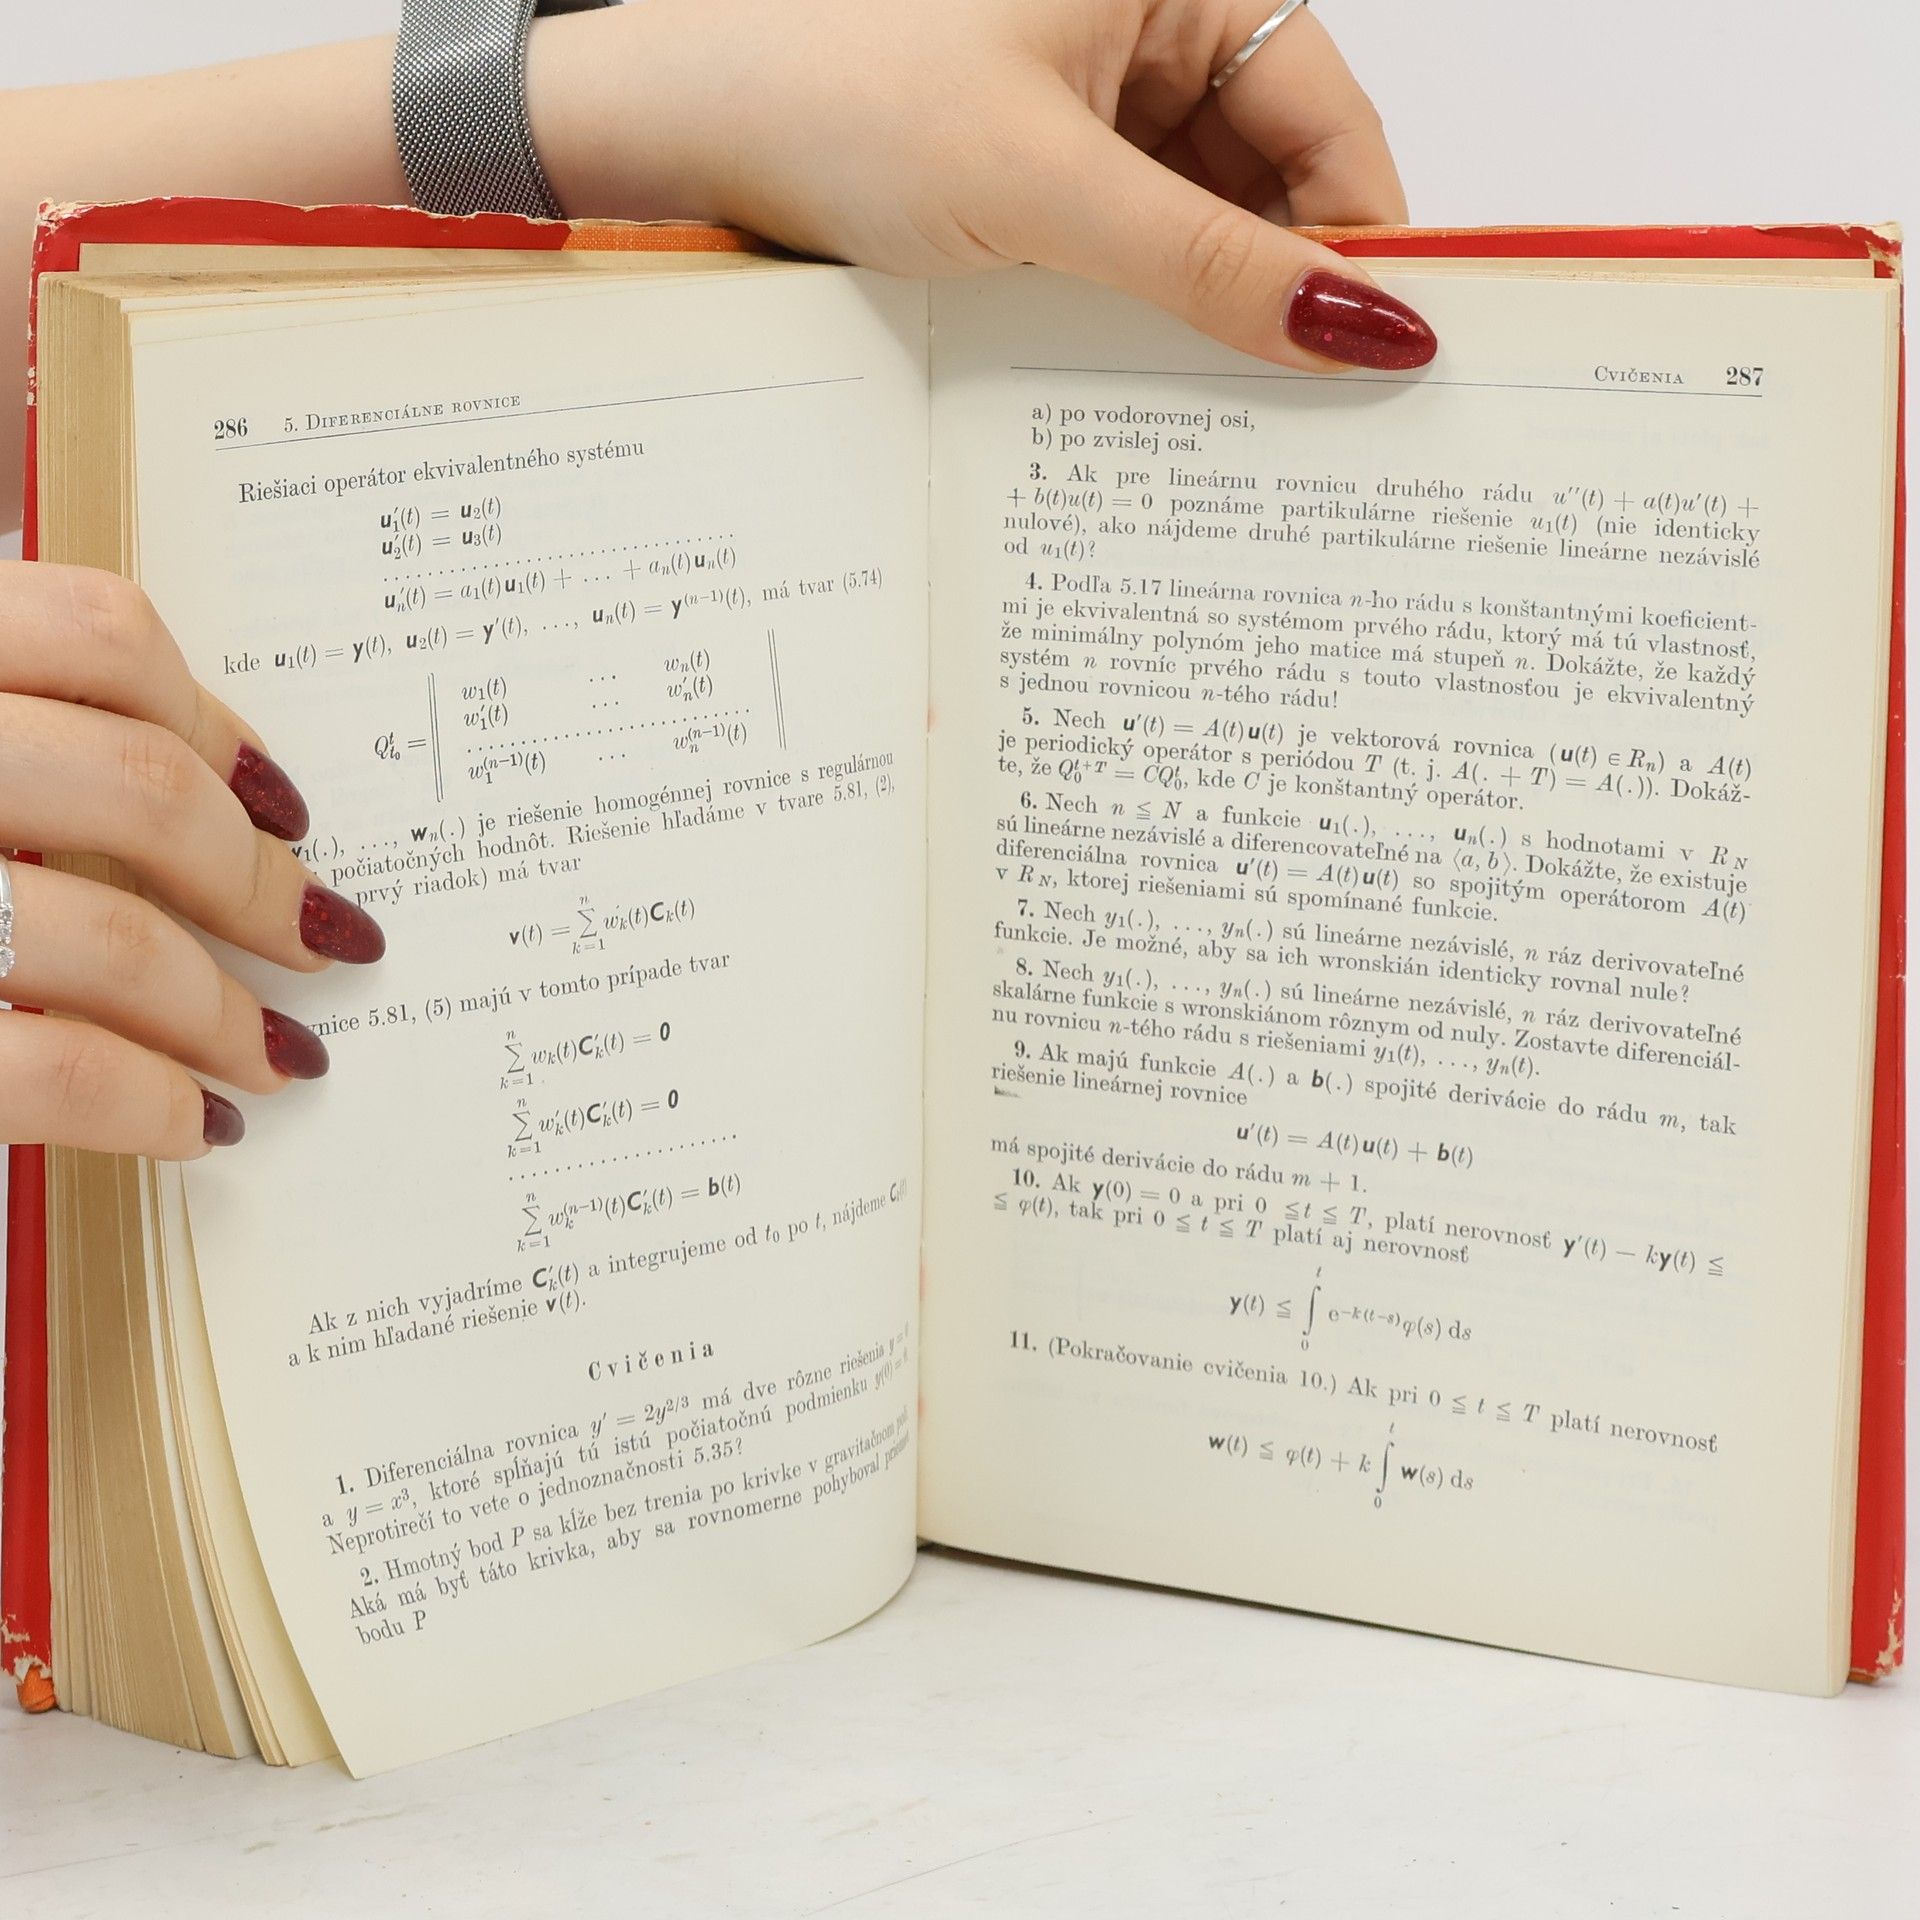 286 5. Diferenciálne rovnice
Riešiaci operátor ekvivalentného systému
u₁′(t) = u₂(t)
u₂′(t) = u₃(t)
. . . . . . . . . . . . . . . . . . . . . . . . . . . .
uₙ′(t) = a₁(t)u₁(t) + ... + aₙ(t)uₙ(t)
kde u₁(t) = y(t), u₂(t) = y′(t), ..., uₙ(t) = y⁽ⁿ⁻¹⁾(t), má tvar (5.74)
w₁(t) ... wₙ(t)
w₁′(t) ... wₙ′(t)
Q_{t₀}^{t} = ‖ . . . . . . . . . . . . . . . . . . . . . . . . ‖
w₁⁽ⁿ⁻¹⁾(t) ... wₙ⁽ⁿ⁻¹⁾(t)
₁(.), ..., wₙ(.) je riešenie homogénnej rovnice s regulárnou
počiatočných hodnôt. Riešenie hľadáme v tvare 5.81, (2),
prvý riadok) má tvar
v(t) = ∑_{k=1}^{n} wₖ(t)Cₖ(t)
vnice 5.81, (5) majú v tomto prípade tvar
∑_{k=1}^{n} wₖ(t)Cₖ′(t) = 0
∑_{k=1}^{n} wₖ′(t)Cₖ′(t) = 0
. . . . . . . . . . . . . . . . . .
∑_{k=1}^{n} wₖ⁽ⁿ⁻¹⁾(t)Cₖ′(t) = b(t)
Ak z nich vyjadríme Cₖ′(t) a integrujeme od t₀ po t, nájdeme
a k nim hľadané riešenie v(t).
Cvičenia
1. Diferenciálna rovnica y′ = 2y^{2/3} má dve rôzne riešenia y =
a y = x³, ktoré spĺňajú tú istú počiatočnú podmienku y(0) =
Neprotirečí to vete o jednoznačnosti 5.35?
2. Hmotný bod P sa kĺže bez trenia po krivke v gravitačnom
Aká má byť táto krivka, aby sa rovnomerne pohyboval
bodu P
Cvičenia 287
a) po vodorovnej osi,
b) po zvislej osi.
3. Ak pre lineárnu rovnicu druhého rádu u″(t) + a(t)u′(t) +
+ b(t)u(t) = 0 poznáme partikulárne riešenie u₁(t) (nie identicky
nulové), ako nájdeme druhé partikulárne riešenie lineárne nezávislé
od u₁(t)?
4. Podľa 5.17 lineárna rovnica n-ho rádu s konštantnými koeficient-
mi je ekvivalentná so systémom prvého rádu, ktorý má tú vlastnosť,
že minimálny polynóm jeho matice má stupeň n. Dokážte, že každý
systém n rovníc prvého rádu s touto vlastnosťou je ekvivalentný
s jednou rovnicou n-tého rádu!
5. Nech u′(t) = A(t)u(t) je vektorová rovnica (u(t) ∈ Rₙ) a A(t)
je periodický operátor s periódou T (t. j. A(. + T) = A(.)). Dokáž-
te, že Q₀^{t+T} = CQ₀^{t}, kde C je konštantný operátor.
6. Nech n ≦ N a funkcie u₁(.), ..., uₙ(.) s hodnotami v R_N
sú lineárne nezávislé a diferencovateľné na ⟨a, b⟩. Dokážte, že existuje
diferenciálna rovnica u′(t) = A(t)u(t) so spojitým operátorom A(t)
v R_N, ktorej riešeniami sú spomínané funkcie.
7. Nech y₁(.), ..., yₙ(.) sú lineárne nezávislé, n ráz derivovateľné
funkcie. Je možné, aby sa ich wronskián identicky rovnal nule?
8. Nech y₁(.), ..., yₙ(.) sú lineárne nezávislé, n ráz derivovateľné
skalárne funkcie s wronskiánom rôznym od nuly. Zostavte diferenciál-
nu rovnicu n-tého rádu s riešeniami y₁(t), ..., yₙ(t).
9. Ak majú funkcie A(.) a b(.) spojité derivácie do rádu m, tak
riešenie lineárnej rovnice
u′(t) = A(t)u(t) + b(t)
má spojité derivácie do rádu m + 1.
10. Ak y(0) = 0 a pri 0 ≦ t ≦ T, platí nerovnosť y′(t) − ky(t) ≦
≦ φ(t), tak pri 0 ≦ t ≦ T platí aj nerovnosť
y(t) ≦ ∫₀ᵗ e^{−k(t−s)}φ(s) ds
11. (Pokračovanie cvičenia 10.) Ak pri 0 ≦ t ≦ T platí nerovnosť
w(t) ≦ φ(t) + k ∫₀ᵗ w(s) ds